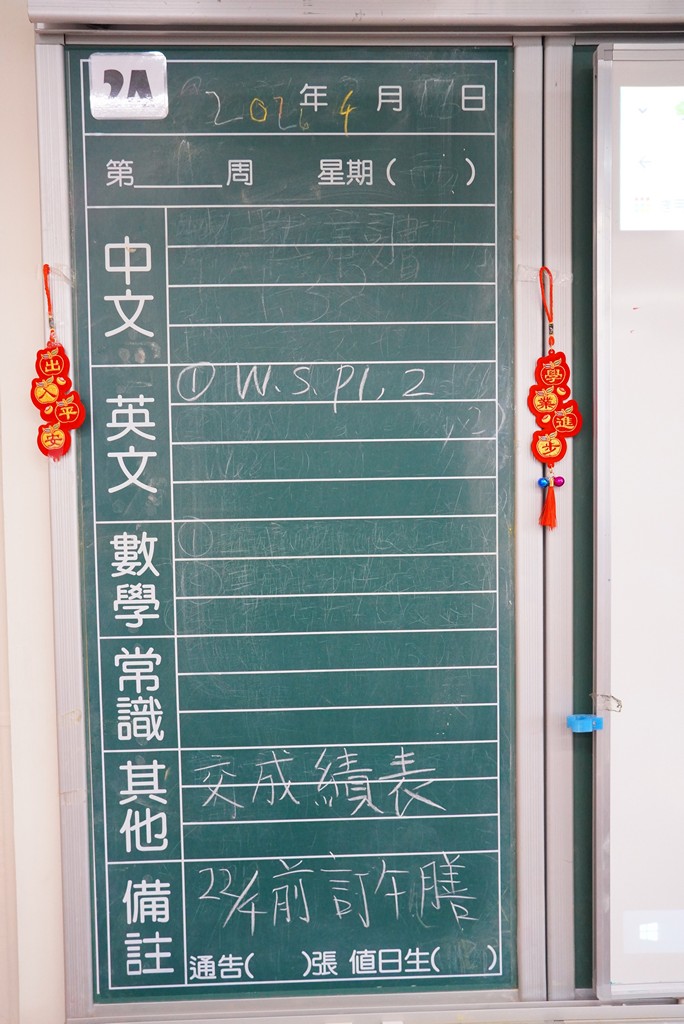 2A
2026年4月 日
第______周 星期( )
中文
英文
① W.S. p1, 2
數學
①
常識
其他
交成績表
備註
22/4前訂午膳
通告( )張 值日生( )
出入平安
學業進步